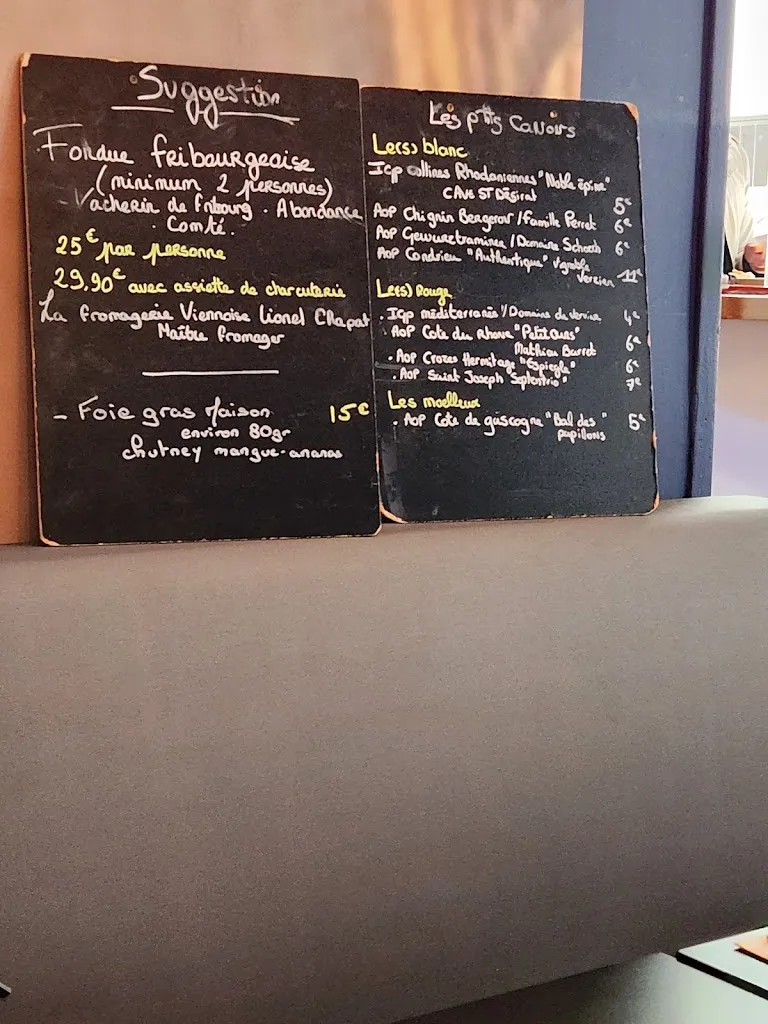 Suggestion
Fondue fribourgeoise
(minimum 2 personnes)
- Vacherin de Fribourg . Abondance
. Comté.
25€ par personne
29.90€ avec assiette de charcuterie
La fromagerie Viennoise Lionel Chapat
Maître fromager
- Foie gras Maison 15€
environ 80gr
chutney mangue-ananas
Les p'tits Canons
Le(s) blanc
Igp collines Rhodaniennes "Noble épine"
CAve ST Désirat 5€
AOP Chignin Bergeron / Famille Perret 6€
AOP Gewurztraminer / Domaine Schoech 6€
AOP Condrieu "Authentique" Vignoble
Verzier 11€
Le(s) Rouge
. Igp méditerranée / Domaine du 4€
. AOP Cote du Rhone "Petit Ours"
Matthieu Barret 6€
. AOP Crozes Hermitage "Espiegle" 6€
. AOP Saint Joseph "Septentrio" 7€
Les moelleux
. AOP Cote de gascogne "Bal des
papillons" 5€